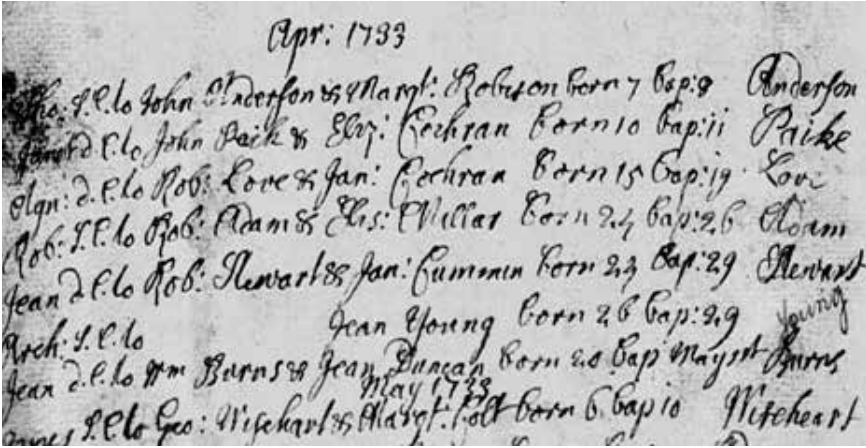 Apr: 1733
Tho: S.l.to John Anderson & Margt: Robison born 7 bap: 8 Anderson
Janet d.l.to John Peik & Eliz: Cochran born 10 bap: 11 Paike
Agn: d.l.to Rob: Love & Jan: Cochran born 15 bap: 19 Love
Rob: S.l.to Rob: Adam & Elis: Millar born 24 bap: 26 Adam
Jean d.l.to Rob: Stewart & Jan: Cummin born 23 bap: 29 Stewart
Arch: S.l.to Jean Young born 26 bap: 29 Young
Jean d.l.to Wm Burns & Jean Duncan born 20 bap May 1st Burns
May 1733
James S.l.to Geo: Wisehart & Margt: Colt born 6 bap 10 Wiseheart